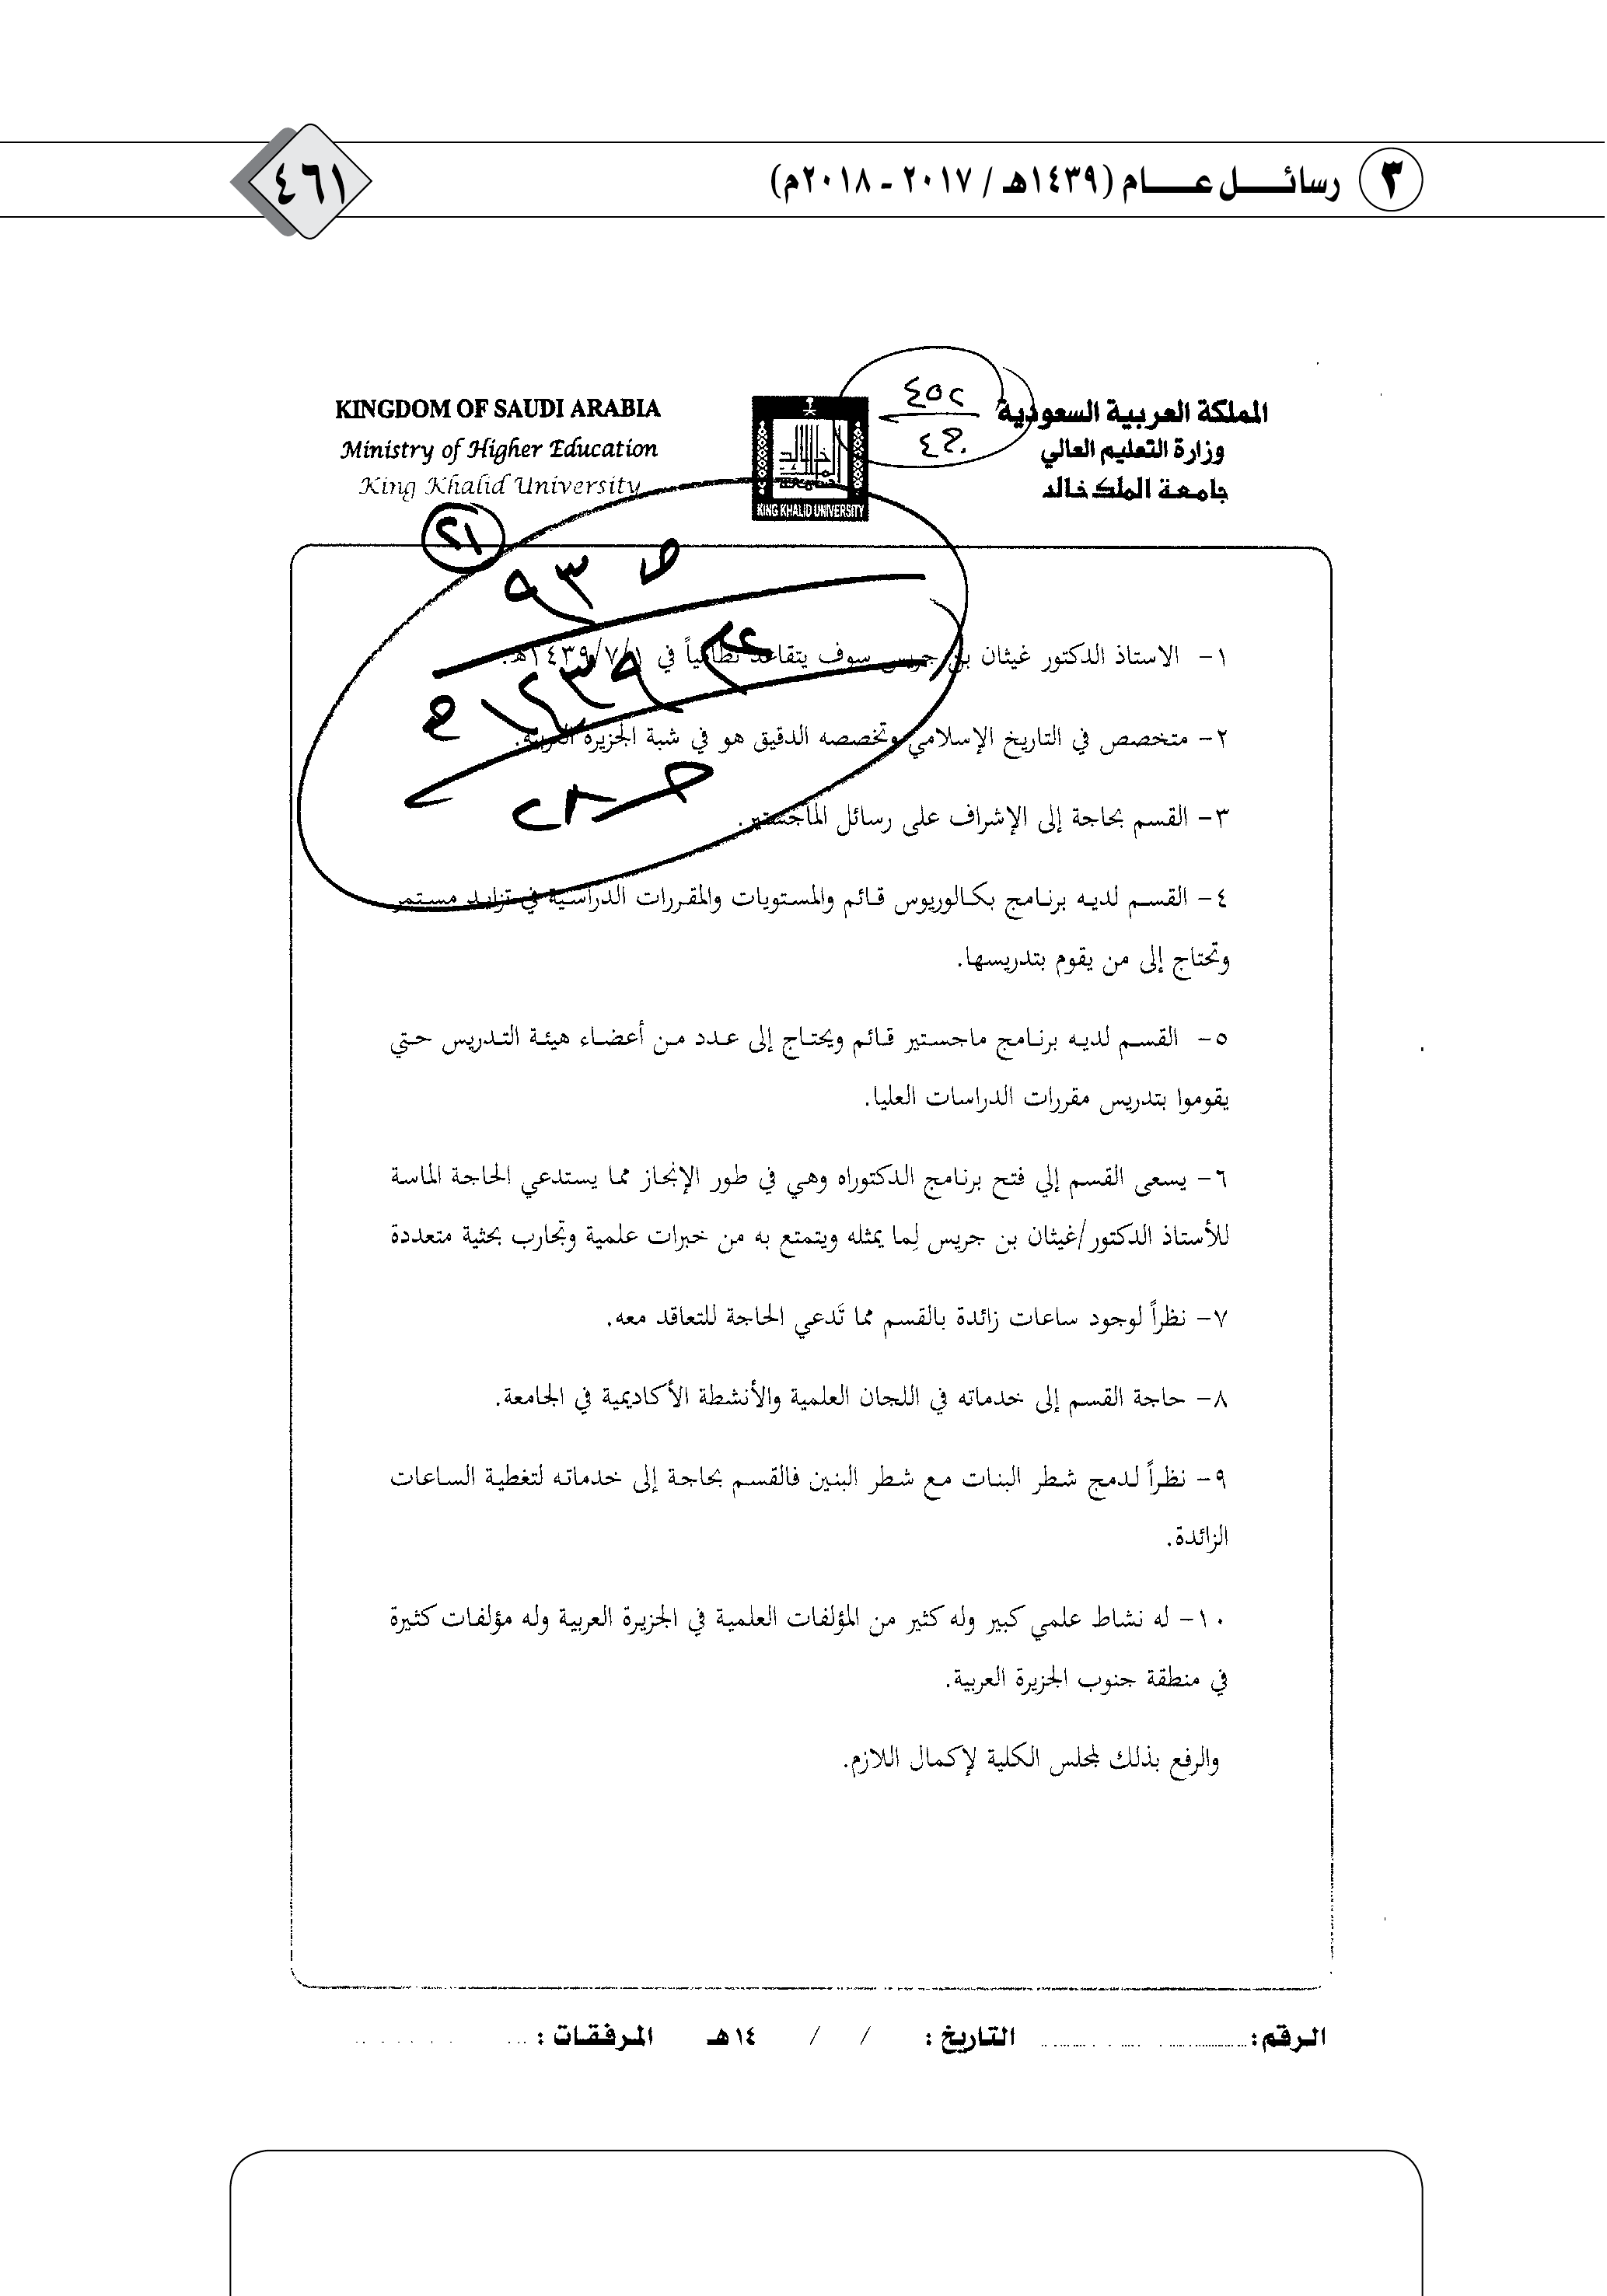 ٣ رسائــل عــام (١٤٣٩هـ / ٢٠١٧ - ٢٠١٨م)
٤٦١
المملكة العربية السعودية
وزارة التعليم العالي
جامعة الملك خالد
٤٥٢
٤٢٠
KING KHALID UNIVERSITY
KINGDOM OF SAUDI ARABIA
Ministry of Higher Education
King Khalid University
٢١
١- الاستاذ الدكتور غيثان بن جريس سوف يتقاعد نظامياً في ١٤٣٩/٧/١هـ.
٢- متخصص في التاريخ الإسلامي وتخصصه الدقيق هو في شبة الجزيرة العربية.
٣- القسم بحاجة إلى الإشراف على رسائل الماجستير.
٤- القسم لديه برنامج بكالوريوس قائم والمستويات والمقررات الدراسية في تزايد مستمر
وتحتاج إلى من يقوم بتدريسها.
٥- القسم لديه برنامج ماجستير قائم ويحتاج إلى عدد من أعضاء هيئة التدريس حتي
يقوموا بتدريس مقررات الدراسات العليا.
٦- يسعى القسم إلي فتح برنامج الدكتوراه وهي في طور الإنجاز مما يستدعي الحاجة الماسة
للأستاذ الدكتور/غيثان بن جريس لِما يمثله ويتمتع به من خبرات علمية وتجارب بحثية متعددة
٧- نظراً لوجود ساعات زائدة بالقسم مما تَدعي الحاجة للتعاقد معه.
٨- حاجة القسم إلى خدماته في اللجان العلمية والأنشطة الأكاديمية في الجامعة.
٩- نظراً لدمج شطر البنات مع شطر البنين فالقسم بحاجة إلى خدماته لتغطية الساعات
الزائدة.
١٠- له نشاط علمي كبير وله كثير من المؤلفات العلمية في الجزيرة العربية وله مؤلفات كثيرة
في منطقة جنوب الجزيرة العربية.
والرفع بذلك لمجلس الكلية لإكمال اللازم.
الرقم: التاريخ: / / ١٤هـ المرفقات: